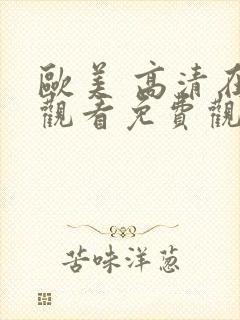 歐美 高清在
觀看免費觀
苦味洋葱